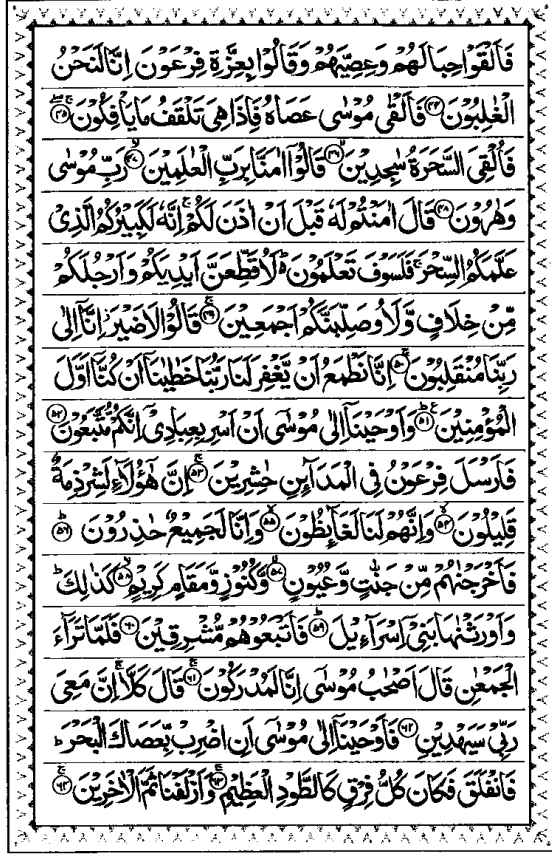 فَاَلۡقَوۡا حِبَالَهُمۡ وَعِصِيَّهُمۡ وَقَالُوۡا بِعِزَّةِ فِرۡعَوۡنَ اِنَّا لَنَحۡنُ
الۡغٰلِبُوۡنَ ﴿۴۴﴾ فَاَلۡقٰى مُوۡسٰى عَصَاهُ فَاِذَا هِىَ تَلۡقَفُ مَا يَاۡفِكُوۡنَ ﴿۴۵﴾
فَاُلۡقِىَ السَّحَرَةُ سٰجِدِيۡنَ ﴿۴۶﴾ قَالُوۡۤا اٰمَنَّا بِرَبِّ الۡعٰلَمِيۡنَ ﴿۴۷﴾ رَبِّ مُوۡسٰى
وَهٰرُوۡنَ ﴿۴۸﴾ قَالَ اٰمَنۡتُمۡ لَهٗ قَبۡلَ اَنۡ اٰذَنَ لَكُمۡ ۚ اِنَّهٗ لَكَبِيۡرُكُمُ الَّذِىۡ
عَلَّمَكُمُ السِّحۡرَ ۚ فَلَسَوۡفَ تَعۡلَمُوۡنَ ؕ لَاُقَطِّعَنَّ اَيۡدِيَكُمۡ وَاَرۡجُلَكُمۡ
مِّنۡ خِلَافٍ وَّلَاُوصَلِّبَنَّكُمۡ اَجۡمَعِيۡنَ ﴿۴۹﴾ قَالُوۡا لَا ضَيۡرَ ؗ اِنَّاۤ اِلٰى
رَبِّنَا مُنۡقَلِبُوۡنَ ﴿۵۰﴾ اِنَّا نَطۡمَعُ اَنۡ يَّغۡفِرَ لَنَا رَبُّنَا خَطٰيٰنَاۤ اَنۡ كُنَّاۤ اَوَّلَ
الۡمُؤۡمِنِيۡنَ ﴿۵۱﴾ وَاَوۡحَيۡنَاۤ اِلٰى مُوۡسٰٓى اَنۡ اَسۡرِ بِعِبَادِىۡۤ اِنَّكُمۡ مُّتَّبَعُوۡنَ ﴿۵۲﴾
فَاَرۡسَلَ فِرۡعَوۡنُ فِى الۡمَدَآٮِٕنِ حٰشِرِيۡنَ ﴿۵۳﴾ اِنَّ هٰٓؤُلَاۤءِ لَشِرۡذِمَةٌ
قَلِيۡلُوۡنَ ﴿۵۴﴾ وَاِنَّهُمۡ لَنَا لَغَآٮِٕظُوۡنَ ﴿۵۵﴾ وَاِنَّا لَجَمِيۡعٌ حٰذِرُوۡنَ ؕ ﴿۵۶﴾
فَاَخۡرَجۡنٰهُمۡ مِّنۡ جَنّٰتٍ وَّعُيُوۡنٍ ﴿۵۷﴾ وَّكُنُوۡزٍ وَّمَقَامٍ كَرِيۡمٍ ﴿۵۸﴾ كَذٰلِكَ ؕ
وَاَوۡرَثۡنٰهَا بَنِىۡۤ اِسۡرَآءِيۡلَ ﴿۵۹﴾ فَاَتۡبَعُوۡهُمۡ مُّشۡرِقِيۡنَ ﴿۶۰﴾ فَلَمَّا تَرَآءَ
الۡجَمۡعٰنِ قَالَ اَصۡحٰبُ مُوۡسٰٓى اِنَّا لَمُدۡرَكُوۡنَ ﴿۶۱﴾ قَالَ كَلَّا ۚ اِنَّ مَعِىَ
رَبِّىۡ سَيَهۡدِيۡنِ ﴿۶۲﴾ فَاَوۡحَيۡنَاۤ اِلٰى مُوۡسٰٓى اَنِ اضۡرِبۡ بِّعَصَاكَ الۡبَحۡرَ ؕ
فَانْفَلَقَ فَكَانَ كُلُّ فِرۡقٍ كَالطَّوۡدِ الۡعَظِيۡمِ ﴿۶۳﴾ وَاَزۡلَفۡنَا ثَمَّ الۡاٰخَرِيۡنَ ﴿۶۴﴾